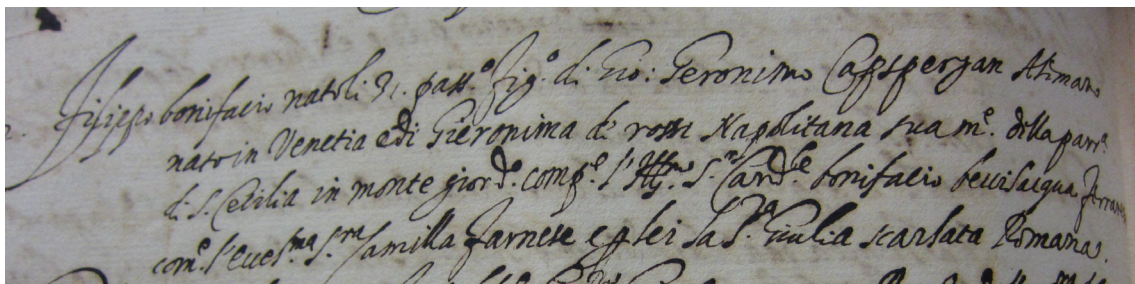 Filippo bonifacio natoli 21. pass.º fig.º di Gio: Geronimo Capspergan Alimano
nato in Venetia e di Gieronima de rossi Napolitana sua m.e della parr.a
di S. Cecilia in monte gior.do comp.e l'Ill.mo S.r Card.le bonifacio bevilacqua ferrarese
com.e l'ecces.ma S.ra Camilla farnese e p lei la S.ra Giulia scarlata Romana.